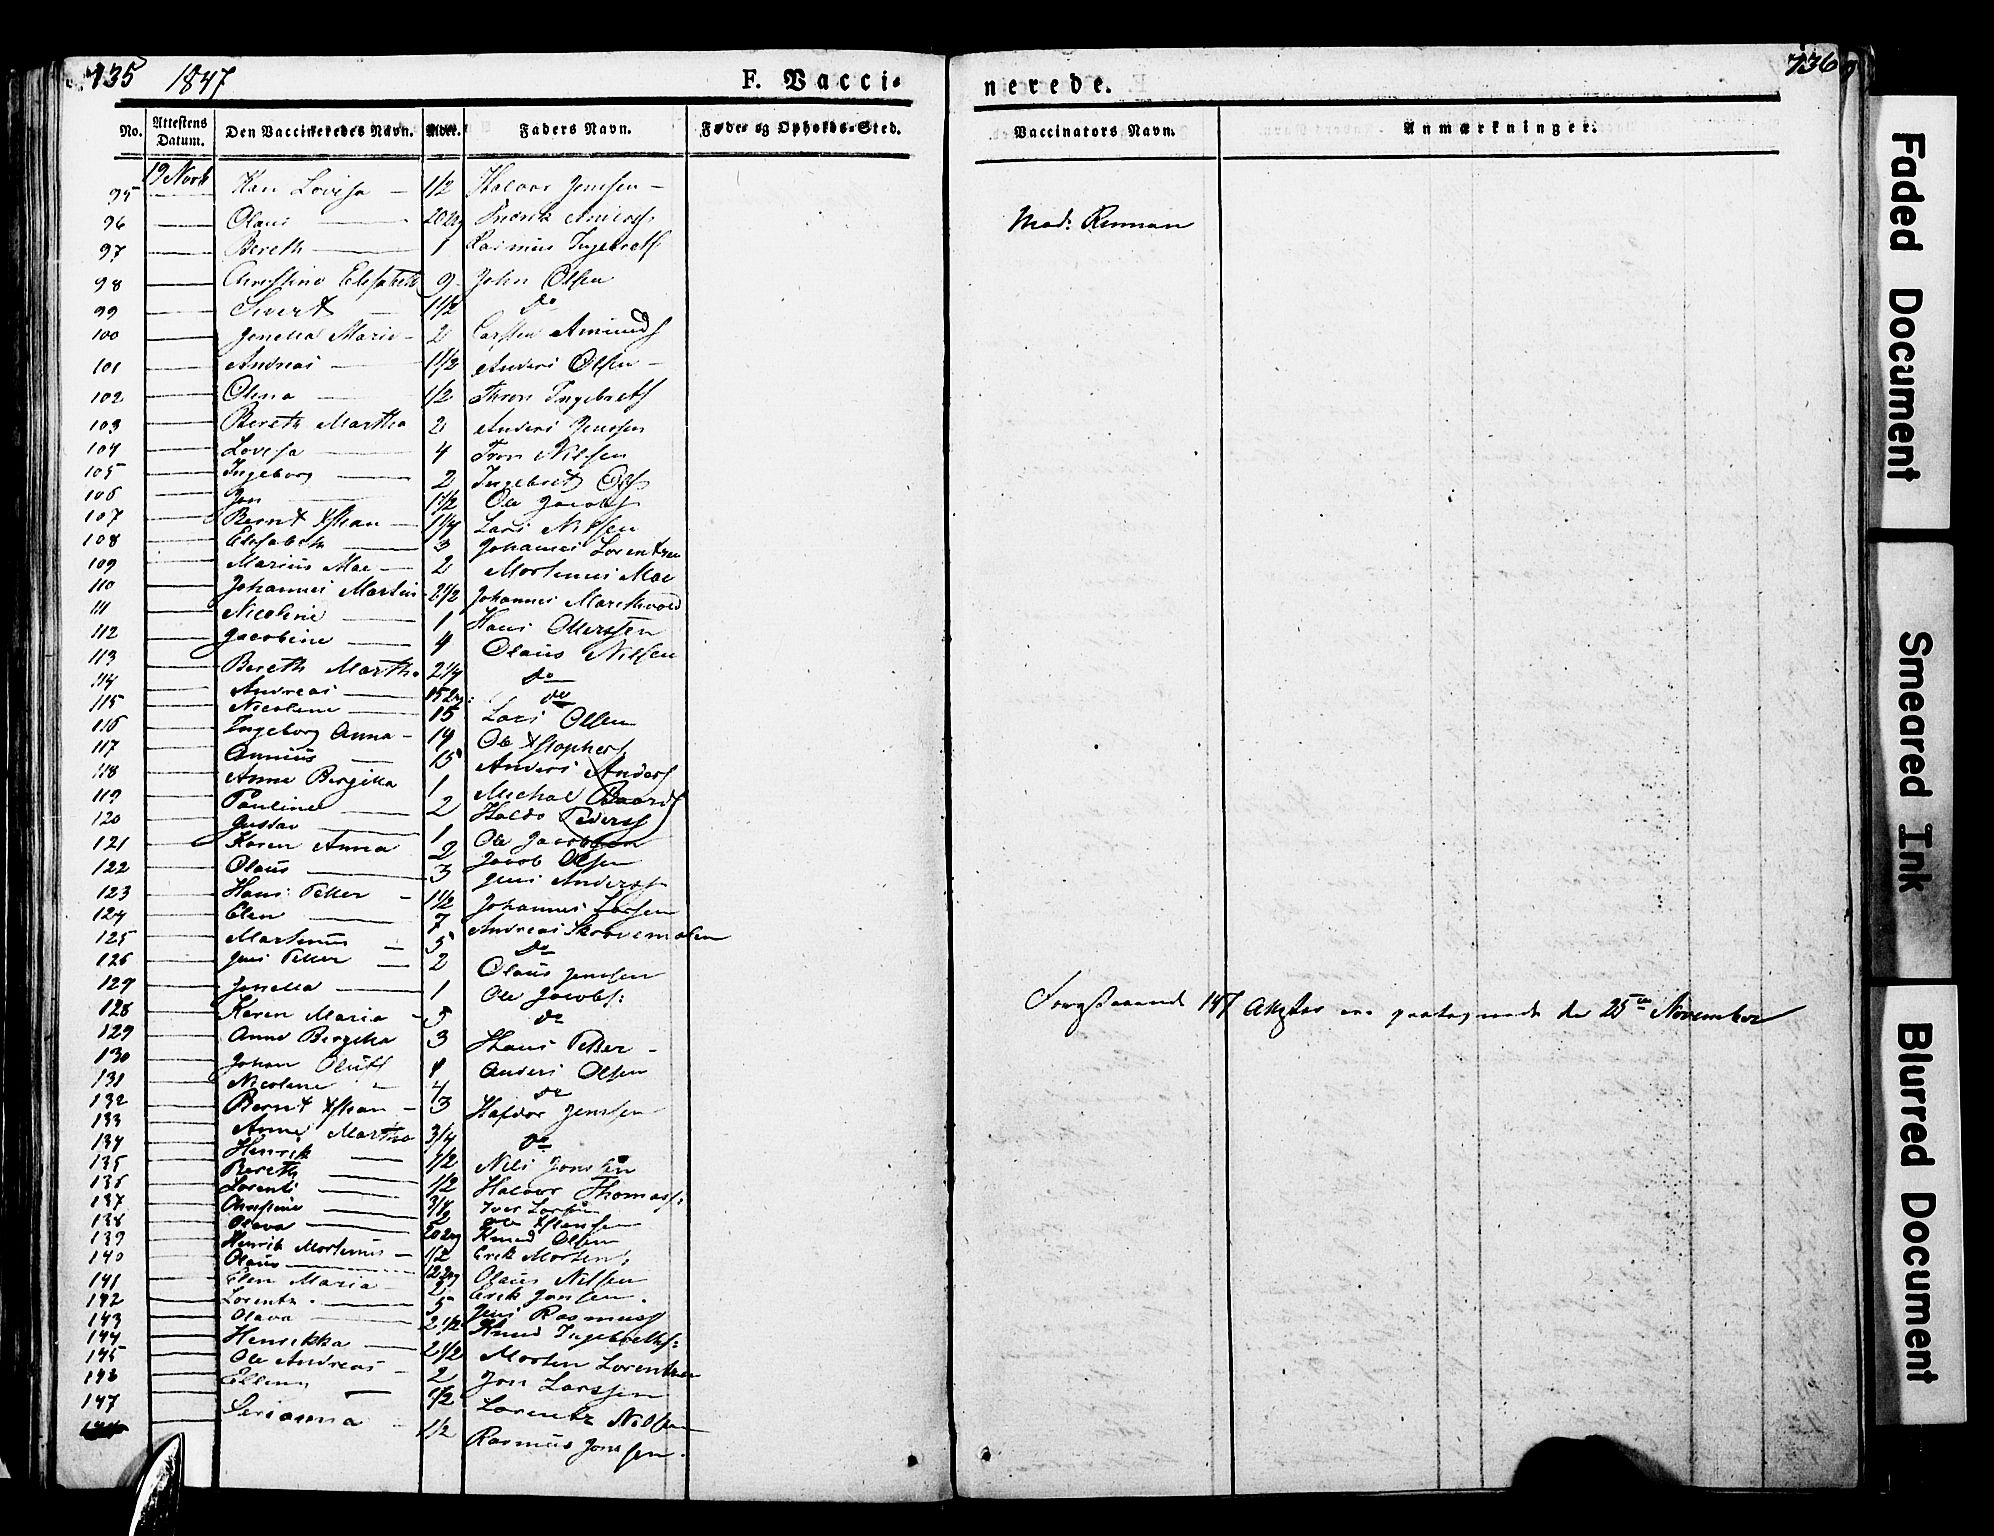 735 1847 F. Vacci-
nerede. 736
No. Attestens Datum. Den Vaccineredes Navn. Alder. Faders Navn. Føde og Opholds-Sted. Vaccinators Navn. Anmærkninger.
95 19 Novb Lovisa — 1/2 Halvor Jenssen —
96 — Olaus — 20
97 — Bereth — 1 Rasmus Ingebretss
98 — Christine Elisabeth 9 John Olsen
99 — Sivert — 1 1/2 do
100 — Jonella Marie — 2 Carsten Amunds
101 — Andreas — 1 1/2 Anders Olsen —
102 — Olina — 1/2 Thron Ingebrets
103 — Bereth Martha 2 Anders Jenssen
104 — Lovisa — 4 Tron Nilsen
105 — Ingeborg — 2 Ingebret Ols
106 — Jon — 1 1/2 Ole Jacobs
107 — Bernt Xstian — 1 1/4 Lars Nilsen
108 — Elisabeth — 3 Johannes Lorentzen
109 — Marius Moe — 2 Mortinus Moe
110 — Johannes Martin 2 1/2 Johannes
111 — Nicoline — 1 Hans
112 — Jacobine — 4 Olaus Nilsen
113 — Bereth Marth. 2 1/4 do
114 — Andreas — 15 do
115 — Nicoline — 15 Lars Olsen
116 — Ingeborg Anna — 19 Ole Xstophers
117 — — 15 Anders Anders
118 — Anne Bergitta 1 Michal Baards
119 — Pauline — 2 Haldo Peders
120 — Gustav — 1 Ole Jacobsen
121 — Karen Anna 2 Jacob Olsen
122 — Olaus — 3 Jens Anderss
123 — Hans Petter — 1 1/2 Johannes Larsen
124 — Elen — 7 Andreas
125 — Martinus — 5 do
126 — Jens Petter — 2 Olaus Jenssen
127 — Jonella — 1 Ole Jacobs:
128 — Karen Maria — 5 do
129 — Anne Bergitta 3 Hans Petter —
130 — Johan 1 Anders Olsen
131 — Nicoline 4 do
132 — Bernt Xstian — 3 Haldor Jenssen
133 — Anne Martha 3/4 do
134 — Henrik — 1/2 Nils Jonssen
135 — Bereth — 1/2 Halvor Thomass:
136 — Lorents — 3/4 Iver Larsen
137 — Christine — 2 Ole Xstensen
138 — Olava — 20 Knud Olsen
139 — Henrik Mortinus — 1/2 Erik Mortens:
140 — Olaus — 12 Olaus Nilsen
141 — Elen Maria 2 Erik Jonsen.
142 — Lorents — 5 Jens Rasmuss
143 — Olava — 2 1/2 Knud Ingebrethss:
144 — Henrikka — 2 1/2 Morten Lorentzen
145 — Ole Andreas — 2 Jon Larssen
146 — Elling — 1/2 Lorents Nilsen
147 — — 1/2 Rasmus Jonssen.
Mad:
Foregstaaende 147 ere den 25de November
Faded Document
Smeared Ink
Blurred Document